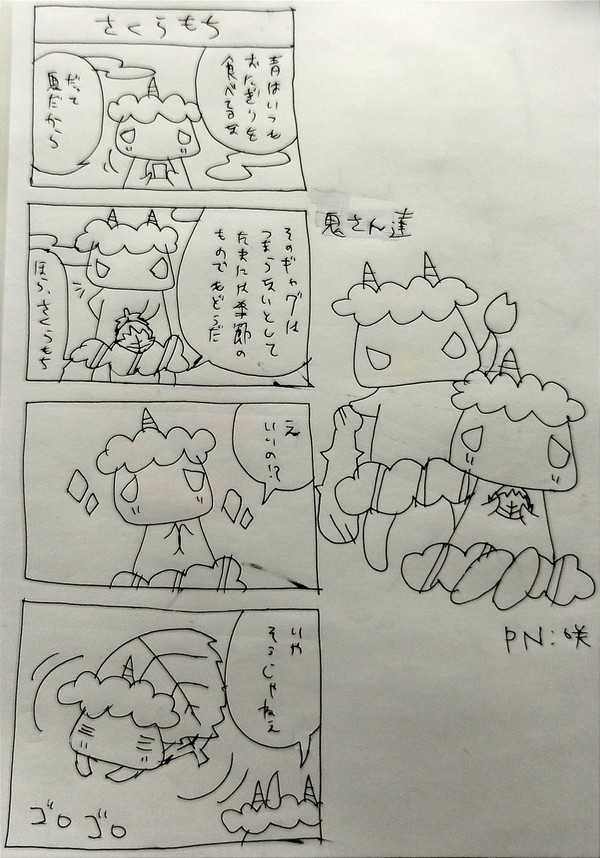 さくらもち
青はいつも
おにぎりを
食べてるな
だって
夏だから
そのギャグは
つまらないとして
たまには季節の
ものでもどうだ
ほら、さくらもち
え
いいの!?
いや
そうじゃねえ
ゴロゴロ
鬼さん達
PN:咲